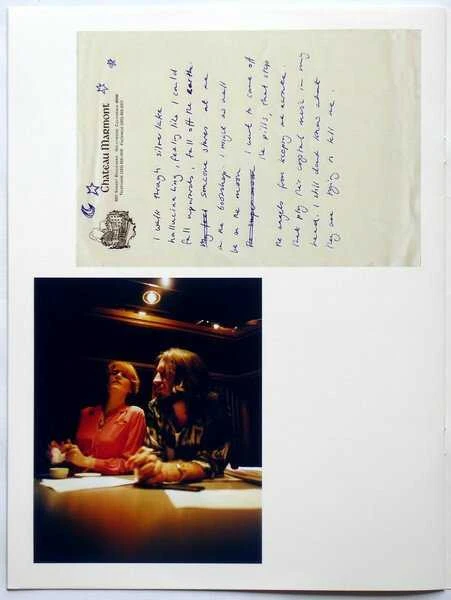 Chateau Marmont
8221 Sunset Boulevard · Hollywood, California 90046
I walk through silver lake
hallucinating, feeling like I could
fall upwards, fall off the earth.
someone stares at me
in the bookshop. I might as well
be on the moon. I want to come off
the pills, that stop
the angels from keeping me awake.
that play their crystal music in my
head. I still dont know what
they are trying to tell me.